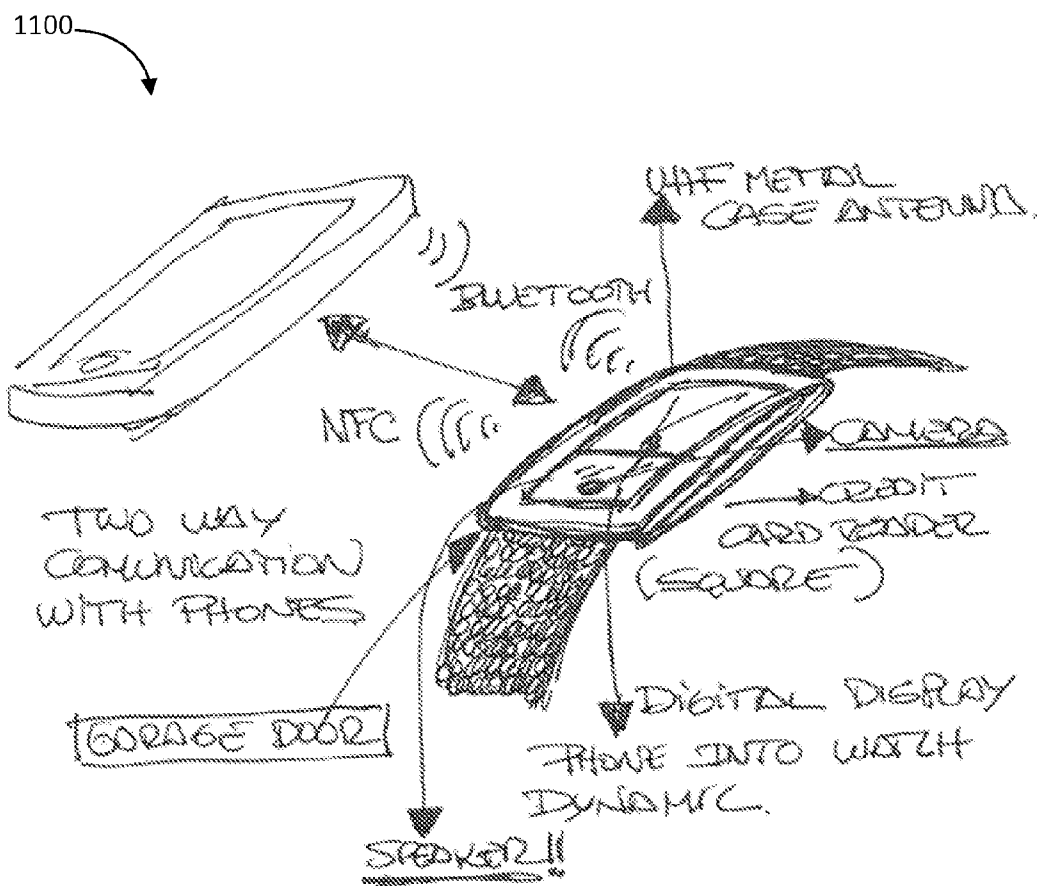 1100
UHF METAL
CASE ANTENNA.
BLUETOOTH
NFC
CAMERA
CREDIT
CARD READER
(SQUARE)
TWO WAY
COMUNICATION
WITH PHONES
GARAGE DOOR
DIGITAL DISPLAY
PHONE INTO WATCH
DYNAMIC.
SPEAKER!!